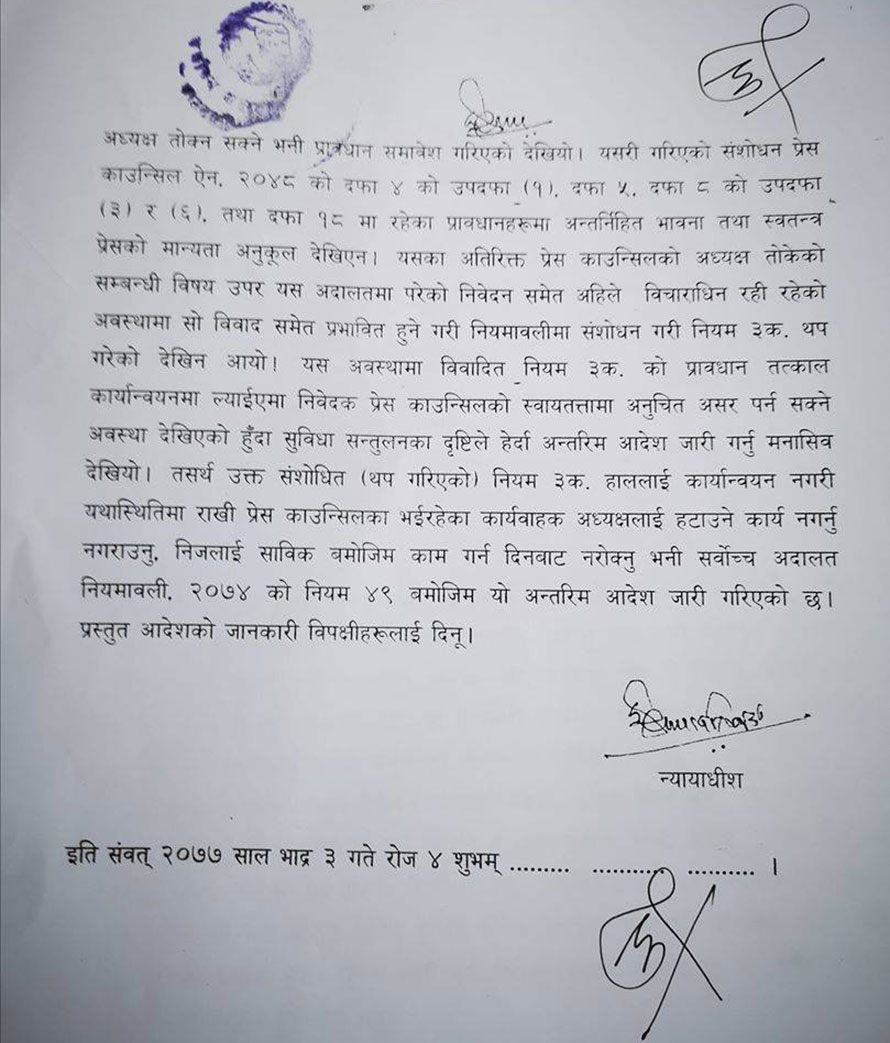 अध्यक्ष तोक्न सक्ने भनी प्रावधान समावेश गरिएको देखियो। यसरी गरिएको संशोधन प्रेस
काउन्सिल ऐन, २०४८ को दफा ४ को उपदफा (१), दफा ५, दफा ८ को उपदफा
(३) र (६), तथा दफा १८ मा रहेका प्रावधानहरूमा अन्तर्निहित भावना तथा स्वतन्त्र
प्रेसको मान्यता अनुकूल देखिएन। यसका अतिरिक्त प्रेस काउन्सिलको अध्यक्ष तोकेको
सम्बन्धी विषय उपर यस अदालतमा परेको निवेदन समेत अहिले विचाराधिन रही रहेको
अवस्थामा सो विवाद समेत प्रभावित हुने गरी नियमावलीमा संशोधन गरी नियम ३क. थप
गरेको देखिन आयो। यस अवस्थामा विवादित नियम ३क. को प्रावधान तत्काल
कार्यान्वयनमा ल्याईएमा निवेदक प्रेस काउन्सिलको स्वायतत्तामा अनुचित असर पर्न सक्ने
अवस्था देखिएको हुँदा सुविधा सन्तुलनका दृष्टिले हेर्दा अन्तरिम आदेश जारी गर्नु मनासिव
देखियो। तसर्थ उक्त संशोधित (थप गरिएको) नियम ३क. हाललाई कार्यान्वयन नगरी
यथास्थितिमा राखी प्रेस काउन्सिलका भईरहेका कार्यवाहक अध्यक्षलाई हटाउने कार्य नगर्नु
नगराउनु, निजलाई साविक बमोजिम काम गर्न दिनबाट नरोक्नु भनी सर्वोच्च अदालत
नियमावली, २०७४ को नियम ४९ बमोजिम यो अन्तरिम आदेश जारी गरिएको छ।
प्रस्तुत आदेशको जानकारी विपक्षीहरूलाई दिनू।
न्यायाधीश
इति संवत् २०७७ साल भाद्र ३ गते रोज ४ शुभम् ......... ........... .......... ।